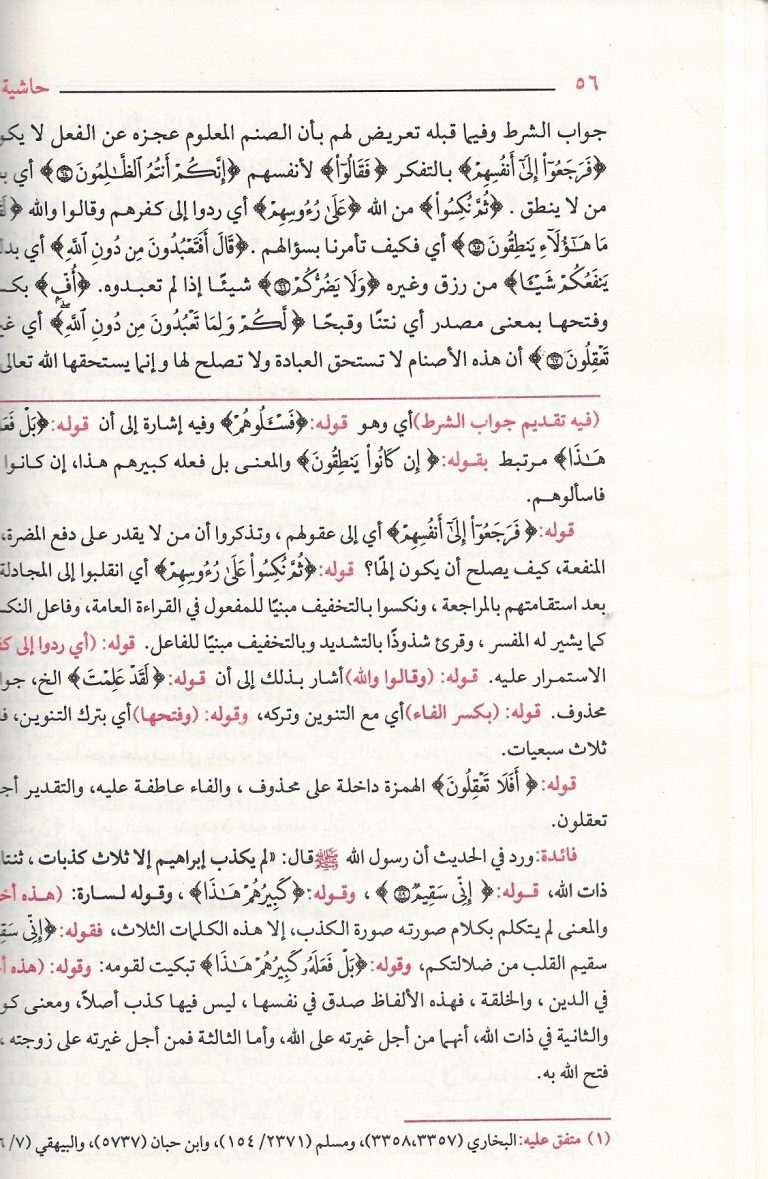 ٥٦ حاشية
جواب الشرط وفيما قبله تعريض لهم بأن الصنم المعلوم عجزه عن الفعل لا
﴿فَرَجَعُوٓاْ إِلَىٰٓ أَنفُسِهِمْ﴾ بالتفكر ﴿فَقَالُوٓاْ﴾ لأنفسهم ﴿إِنَّكُمْ أَنتُمُ ٱلظَّٰلِمُونَ ٦٤﴾ أي
من لا ينطق . ﴿ثُمَّ نُكِسُواْ﴾ من الله ﴿عَلَىٰ رُءُوسِهِمْ﴾ أي ردوا إلى كفرهم وقالوا والله
مَا هَٰٓؤُلَآءِ يَنطِقُونَ ٦٥﴾ أي فكيف تأمرنا بسؤالهم .﴿قَالَ أَفَتَعْبُدُونَ مِن دُونِ ٱللَّهِ﴾ أي
يَنفَعُكُمْ شَيْـًٔا﴾ من رزق وغيره ﴿وَلَا يَضُرُّكُمْ ٦٦﴾ شيئًا إذا لم تعبدوه. ﴿أُفٍّ﴾
وفتحها بمعنى مصدر أي نتنًا وقبحًا ﴿لَّكُمْ وَلِمَا تَعْبُدُونَ مِن دُونِ ٱللَّهِ﴾ أي
تَعْقِلُونَ ٦٧﴾ أن هذه الأصنام لا تستحق العبادة ولا تصلح لها وإنما يستحقها الله تعالى
(فيه تقديم جواب الشرط)أي وهو قوله:﴿فَسْـَٔلُوهُمْ﴾ وفيه إشارة إلى أن قوله:﴿بَلْ
هَٰذَا﴾ مرتبط بقوله:﴿إِن كَانُواْ يَنطِقُونَ﴾ والمعنى بل فعله كبيرهم هذا، إن كانوا
فاسألوهم.
قوله:﴿فَرَجَعُوٓاْ إِلَىٰٓ أَنفُسِهِمْ﴾ أي إلى عقولهم ، وتذكروا أن من لا يقدر على دفع المضرة،
المنفعة، كيف يصلح أن يكون إلهًا؟ قوله:﴿ثُمَّ نُكِسُواْ عَلَىٰ رُءُوسِهِمْ﴾ أي انقلبوا إلى المجادلة
بعد استقامتهم بالمراجعة ، ونكسوا بالتخفيف مبنيًا للمفعول في القراءة العامة، وفاعل
كما يشير له المفسر ، وقرئ شذوذًا بالتشديد وبالتخفيف مبنيًا للفاعل. قوله: (أي ردوا إلى
الاستمرار عليه. قوله: (وقالوا والله)أشار بذلك إلى أن قوله:﴿لَقَدْ عَلِمْتَ﴾ الخ،
محذوف. قوله: (بكسر الفاء)أي مع التنوين وتركه، وقوله: (وفتحها)أي بترك التنوين،
ثلاث سبعيات.
قوله:﴿أَفَلَا تَعْقِلُونَ﴾ الهمزة داخلة على محذوف ، والفاء عاطفة عليه، والتقدير
تعقلون.
فائدة:ورد في الحديث أن رسول الله ﷺ قال: «لم يكذب إبراهيم إلا ثلاث كذبات ،
ذات الله، قوله:﴿إِنِّي سَقِيمٌ ٨٩﴾ ، وقوله:﴿كَبِيرُهُمْ هَٰذَا﴾ ، وقوله لسارة: (هذه
والمعنى لم يتكلم بكلام صورته صورة الكذب، إلا هذه الكلمات الثلاث، فقوله:﴿إِنِّي
سقيم القلب من ضلالتكم، وقوله:﴿بَلْ فَعَلَهُۥ كَبِيرُهُمْ هَٰذَا﴾ تبكيت لقومه: وقوله: (هذه
في الدين ، والخلقة ، فهذه الألفاظ صدق في نفسها ، ليس فيها كذب أصلاً، ومعنى
والثانية في ذات الله، أنهما من أجل غيرته على الله، وأما الثالثة فمن أجل غيرته على زوجته ،
فتح الله به.
(١) متفق عليه:البخاري (٣٣٥٧،٣٣٥٨)، ومسلم (٢٣٧١/ ١٥٤)، وابن حبان (٥٧٣٧)، والبيهقي (٧/